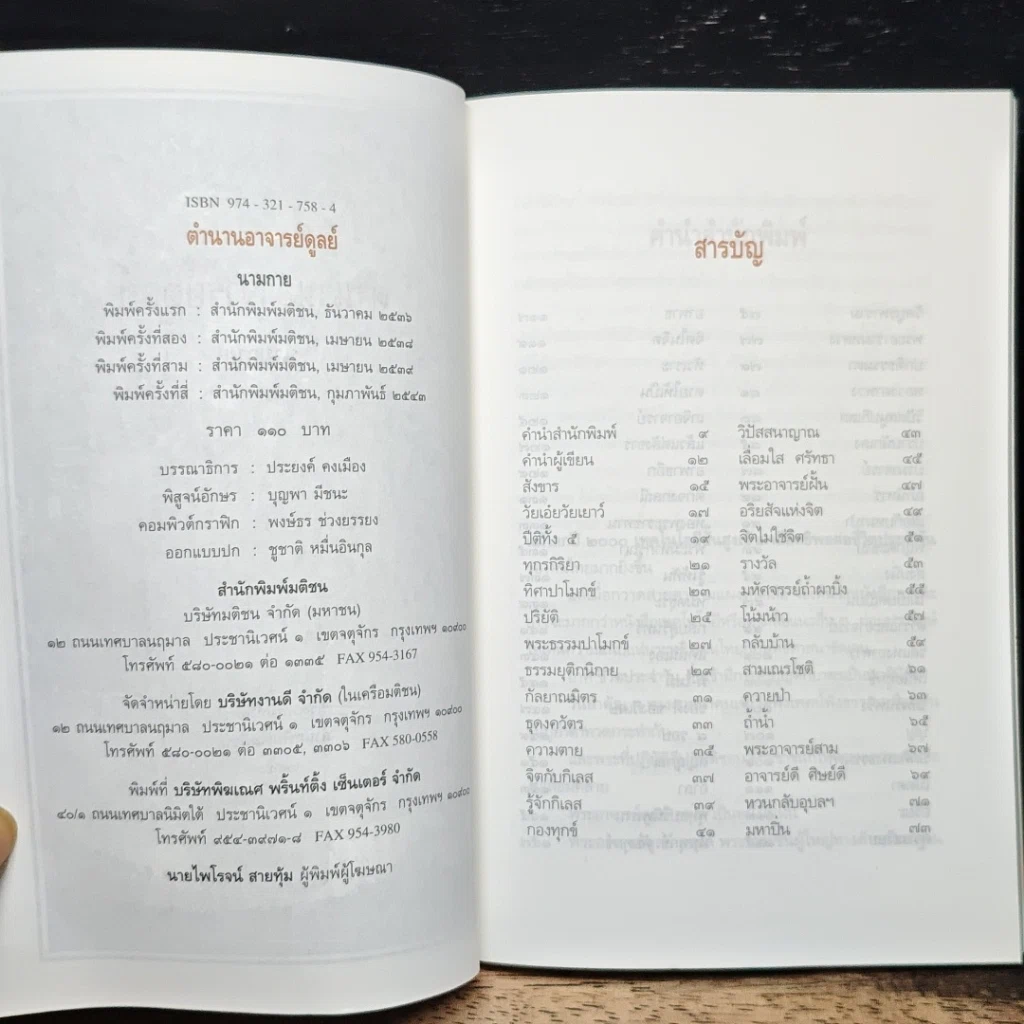 ISBN 974 - 321 - 758 - 4
ตำนานอาจารย์ดูลย์
นามกาย
พิมพ์ครั้งแรก : สำนักพิมพ์มติชน, ธันวาคม ๒๕๓๖
พิมพ์ครั้งที่สอง : สำนักพิมพ์มติชน, เมษายน ๒๕๓๘
พิมพ์ครั้งที่สาม : สำนักพิมพ์มติชน, เมษายน ๒๕๓๙
พิมพ์ครั้งที่สี่ : สำนักพิมพ์มติชน, กุมภาพันธ์ ๒๕๔๓
ราคา ๑๑๐ บาท
บรรณาธิการ : ประยงค์ คงเมือง
พิสูจน์อักษร : บุญพา มีชนะ
คอมพิวต์กราฟิก : พงษ์ธร ช่วงยรรยง
ออกแบบปก : ชูชาติ หมื่นอินกุล
สำนักพิมพ์มติชน
บริษัทมติชน จำกัด (มหาชน)
๑๒ ถนนเทศบาลนฤมาล ประชานิเวศน์ ๑ เขตจตุจักร กรุงเทพฯ ๑๐๙๐๐
โทรศัพท์ ๕๘๐-๐๐๒๑ ต่อ ๑๓๓๕ FAX 954-3167
จัดจำหน่ายโดย บริษัทงานดี จำกัด (ในเครือมติชน)
๑๒ ถนนเทศบาลนฤมาล ประชานิเวศน์ ๑ เขตจตุจักร กรุงเทพฯ ๑๐๙๐๐
โทรศัพท์ ๕๘๐-๐๐๒๑ ต่อ ๓๓๐๕, ๓๓๐๖ FAX 580-0558
พิมพ์ที่ บริษัทพิฆเณศ พริ้นท์ติ้ง เซ็นเตอร์ จำกัด
๔๐/๑ ถนนเทศบาลนิมิตใต้ ประชานิเวศน์ ๑ เขตจตุจักร กรุงเทพฯ ๑๐๙๐๐
โทรศัพท์ ๙๕๔-๓๙๗๑-๘ FAX 954-3980
นายไพโรจน์ สายทุ้ม ผู้พิมพ์ผู้โฆษณา
สารบัญ
คำนำสำนักพิมพ์ ๙
คำนำผู้เขียน ๑๒
สังขาร ๑๕
วัยเอ๋ยวัยเยาว์ ๑๗
ปีติทั้ง ๕ ๑๙
ทุกรกิริยา ๒๑
ทิศาปาโมกข์ ๒๓
ปริยัติ ๒๕
พระธรรมปาโมกข์ ๒๗
ธรรมยุติกนิกาย ๒๙
กัลยาณมิตร ๓๑
ธุดงควัตร ๓๓
ความตาย ๓๕
จิตกับกิเลส ๓๗
รู้จักกิเลส ๓๙
กองทุกข์ ๔๑
วิปัสสนาญาณ ๔๓
เลื่อมใส ศรัทธา ๔๕
พระอาจารย์ฝั้น ๔๗
อริยสัจแห่งจิต ๔๙
จิตไม่ใช่จิต ๕๑
รางวัล ๕๓
มหัศจรรย์ถ้ำผาบิ้ง ๕๕
โน้มน้าว ๕๗
กลับบ้าน ๕๙
สามเณรโชติ ๖๑
ควายป่า ๖๓
ถ้ำน้ำ ๖๕
พระอาจารย์สาม ๖๗
อาจารย์ดี ศิษย์ดี ๖๙
หวนกลับอุบลฯ ๗๑
มหาปิ่น ๗๓